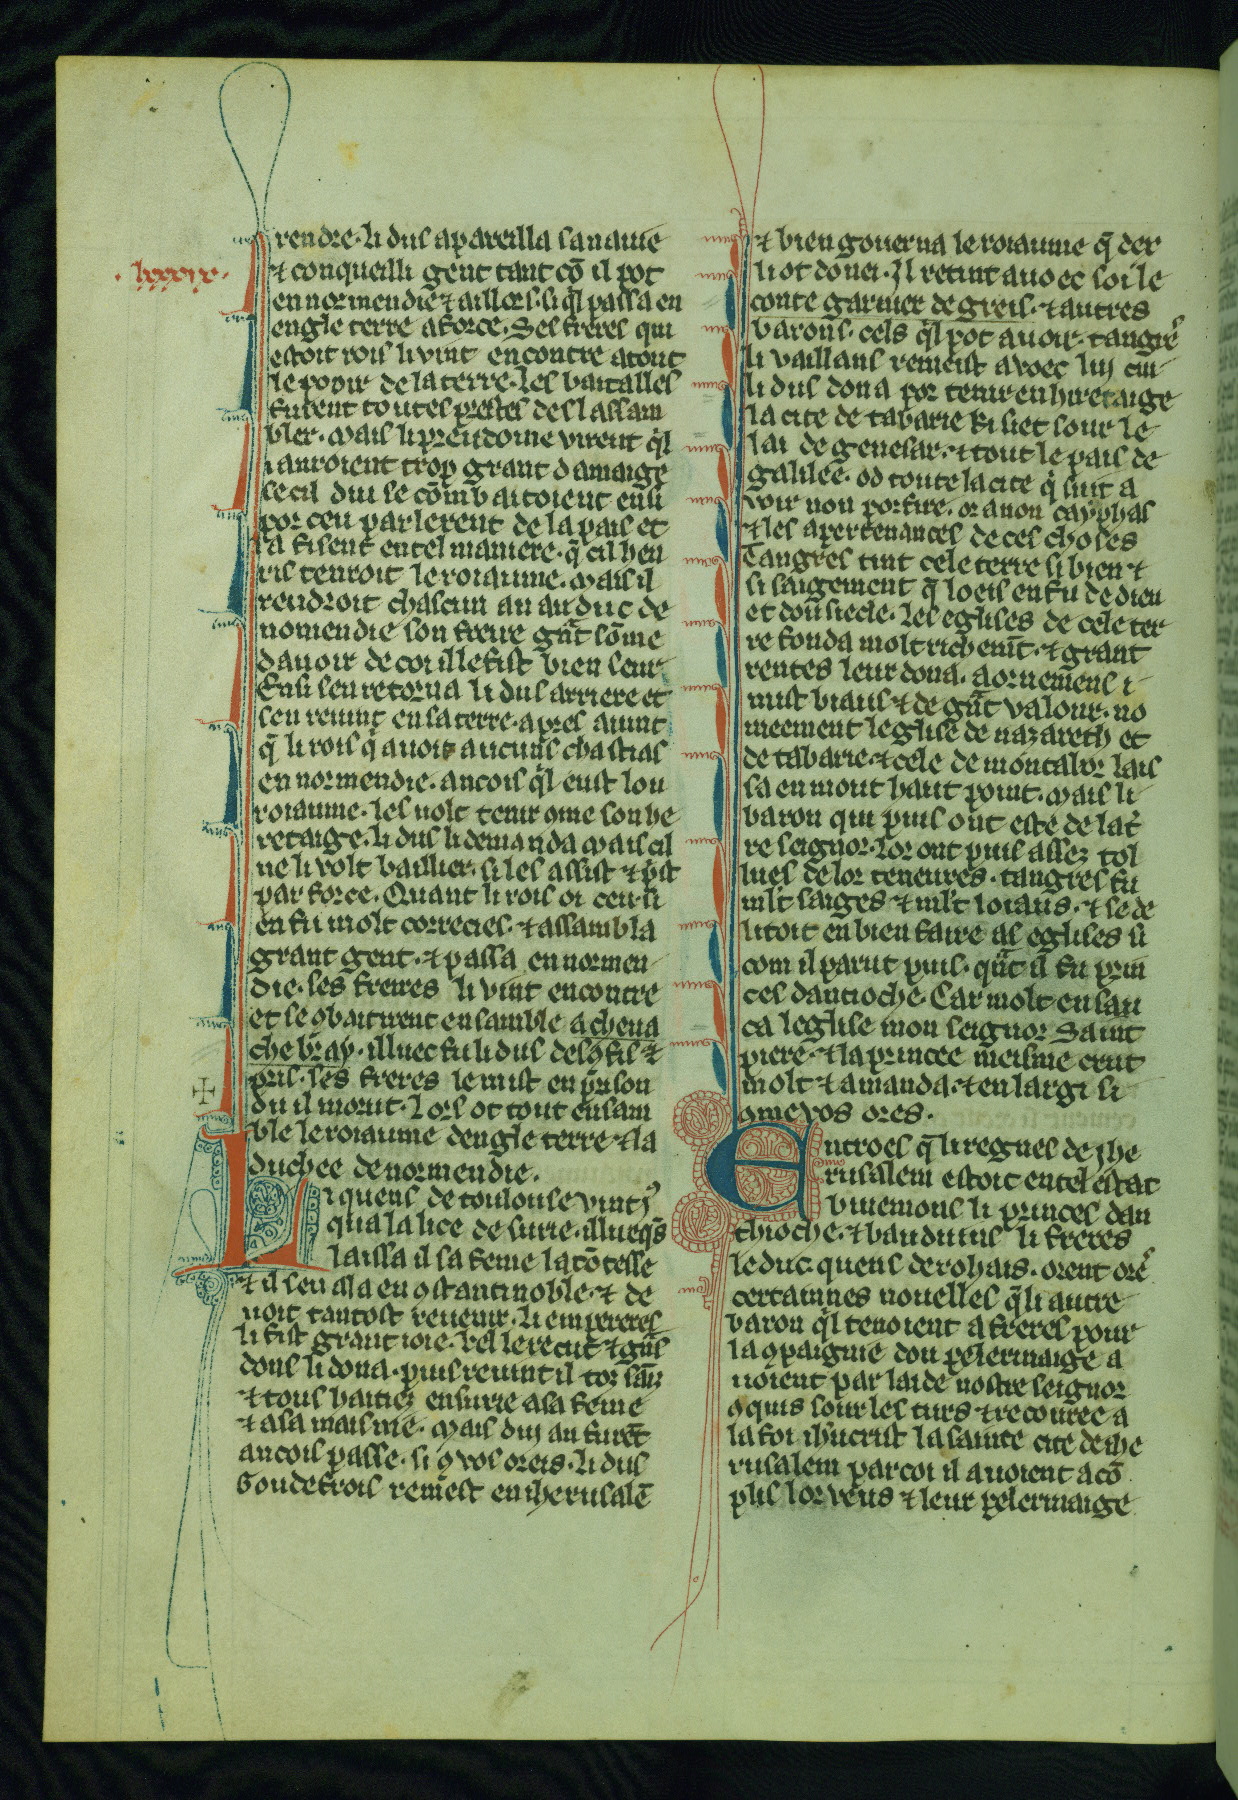 .lxxxix.
rendre. li dus apareilla sa nauie
⁊ conqueilli gent tant cō il pot
en normendie ⁊ aillors. si ql̃ passa en
engle terre a force. Ses freres qui
estoit rois li vint encontre atout
le pooir de la terre. les batailles
furent toutes prestes de sassam
bler. mais li preudome virent ql̃
i auroient trop grant damaige
se cil dui se cōmbatoient ensi
por ceu parlerent de la pais et
la fisent en tel maniere. q̃ cil hen
ris tenroit le roiaume. mais il
rendroit chascun an au duc de
nomendie son freire gñt sōme
dauoir de coi ille fist bien seur
Ensi sen retorna li dus arriere et
sen reuint en sa terre. apres auint
q̃ li rois q̃ auoit aucuns chastias
en normendie. ancois ql̃ eust lou
roiaume. les uolt tenir ꝯme son he
retaige. li dus li demanda mais cil
ne li volt baillier. si les assist ⁊ p̃st
par force. Quant li rois oi ceu. si
en fu molt correcies. ⁊ assambla
grant gent. ⁊ passa en normen
die. ses freires li vint encontre
et se ꝯbatirent ensamble a cheua
che bray. illuec fu li dus desꝯfis ⁊
pris. ses freres le mist en p̃son
du il morut. lors ot tout ensam
ble le roiaume dengle terre ⁊ la
duchee de normendie.
Li quens de toulouse vint iꝰ
qua la lice de surie. illueq̃s
laissa il sa feme la cōtesse
⁊ il sen ala en ꝯstantinoble. ⁊ de
uoit tantost reuenir. li empereres
li fist grant ioie. bel le recut ⁊ gñs
dons li dona. puis reuint il tor sãz
⁊ tous haitiez en surie a sa feme
⁊ a sa maisnie. mais dui an furēt
ancois passe. si ꝯ vos oreis. li dus
Goudefrois remēst en iherusalē
⁊ bien gouerna le roiaume q̃ dex
li ot donei. Il retint auoec soi le
conte garnier de greis. ⁊ autres
barons. cels ql̃ pot auoir. tangreˢ
li vaillans remeist avoec lui cui
li dus dona por tenir en hiretaige
la cite de tabarie ki siet sour le
lai de genesar. ⁊ tout le pais de
galilee. od toute la cite q̃ suit a
voir non porfire. or a non cayphas
⁊ les apertenances de ces choses
Tangres tint cele terre si bien ⁊
si saigement q̃ loeis en fu de dieu
et dou siecle. les eglises de cele ter
re fonda molt richemēt. ⁊ grant
rentes leur dona. aornemens i
mist biaus ⁊ de gñt valour. no
meement leglise de nazareth et
de tabarie. ⁊ cele de montabor lais
sa en mout haut point. mais li
baron qui puis ont este de la t̃
re seignor. lor ont puis assez tol
lues de lor teneures. tangres fu
ml̃t saiges ⁊ ml̃t loiaus. ⁊ se de
litoit en bien faire as eglises si
com il parut puis. qñt il fu prin
ces dantioche. Car molt ensau
ca leglise mon seignor Saint
piere. ⁊ la princee meisme crut
molt ⁊ amanda. ⁊ en largi si
ꝯme vos ores.
Entroes q̃ li regnes de ihe
rusalem estoit en tel estat
buiemons li princes dan
thioche. ⁊ bauduins li freres
le duc. quens de rohais. orent oreˢ
certainnes nouelles q̃ li autre
baron ql̃ tenoient a freres pour
la ꝯpaignie dou pelerinaige a
uoient par laide nostre seignor
ꝯquis sour les turs ⁊ recouree a
la foi ihũcrist la sainte cite de ihe
rusalem par coi il auoient acō
plis lor veus ⁊ leur pelerinaige